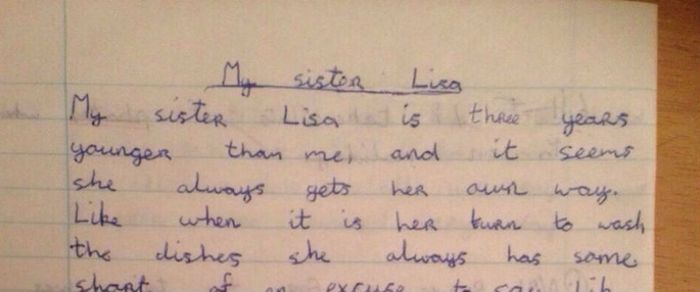 My sister Lisa
My sister Lisa is three years
younger than me, and it seems
she always gets her own way.
Like when it is her turn to wash
the dishes she always has some
of an excuse to